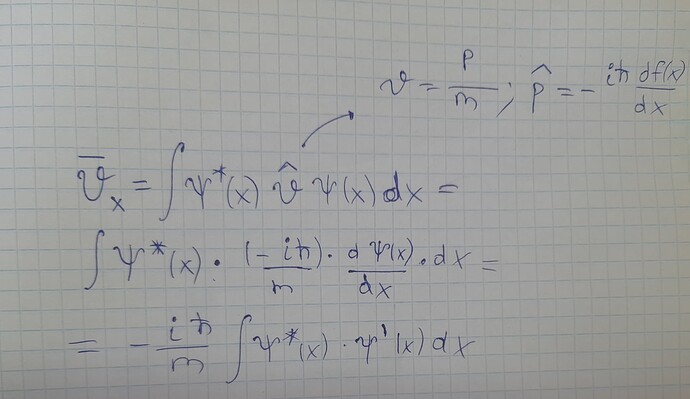 v = p/m ; p̂ = - iħ df(x)/dx
v̄ₓ = ∫ ψ*(x) v̂ ψ(x) dx =
∫ ψ*(x) · (-iħ)/m · dψ(x)/dx · dx =
= - iħ/m ∫ ψ*(x) · ψ'(x) dx